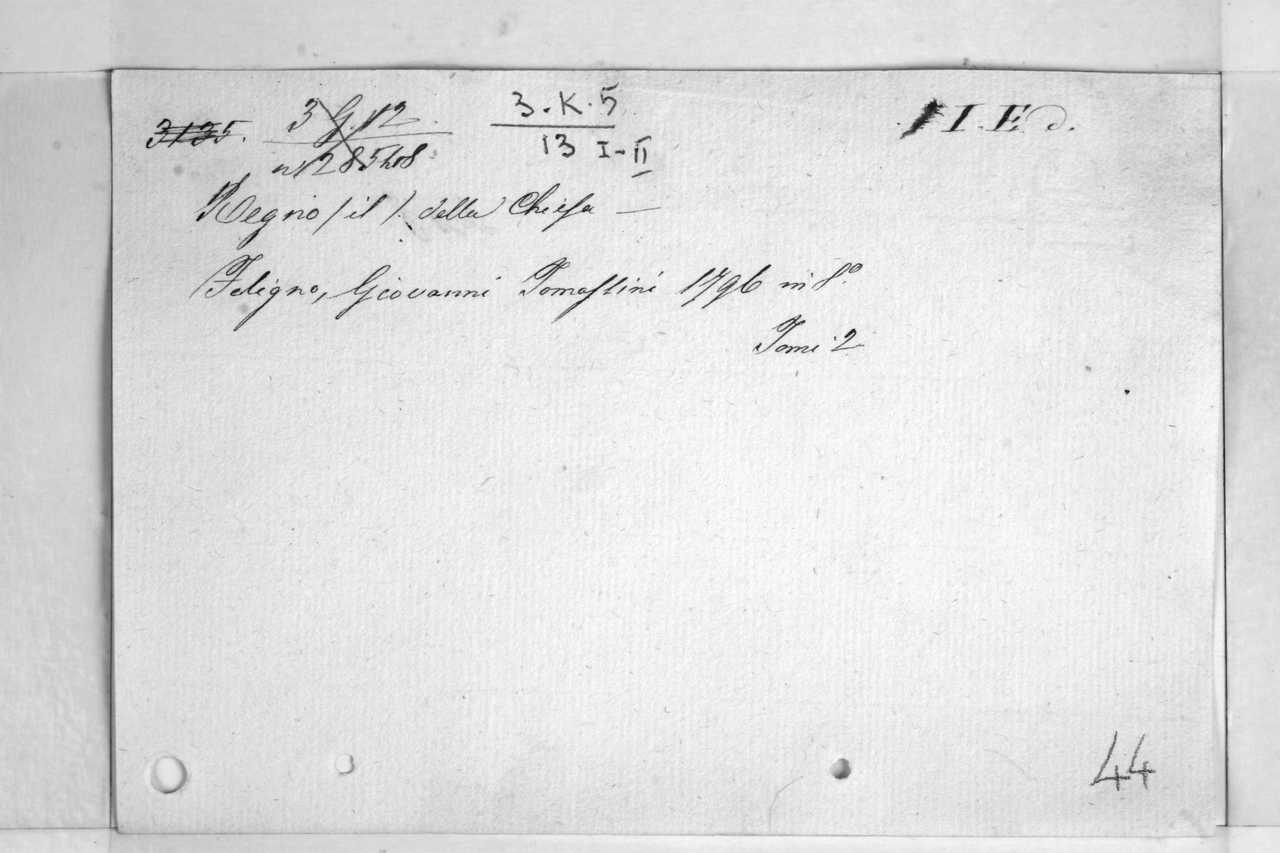 3135. 3 G. 12 3. K. 5 I. E.
n 12 13 I-II
Regno / il / della Chiesa —
Foligno, Giovanni Tomassini 1796 in 8.º
Tomi 2
44